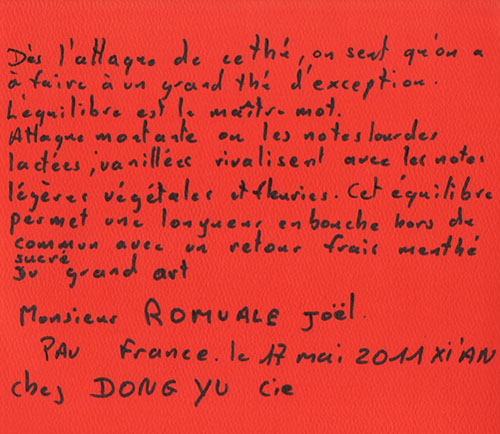 Dès l'attaque de ce thé, on sent qu'on a
à faire à un grand thé d'exception.
L'équilibre est le maître mot.
Attaque montante ou les notes lourdes
lactées, vanillées rivalisent avec les notes
légères végétales et fleuries. Cet équilibre
permet une longueur en bouche hors du
commun avec un retour frais menthé
sucré
Du grand art
Monsieur ROMUALE Joël.
PAU France. le 17 mai 2011 XI'AN
chez DONG YU Cie